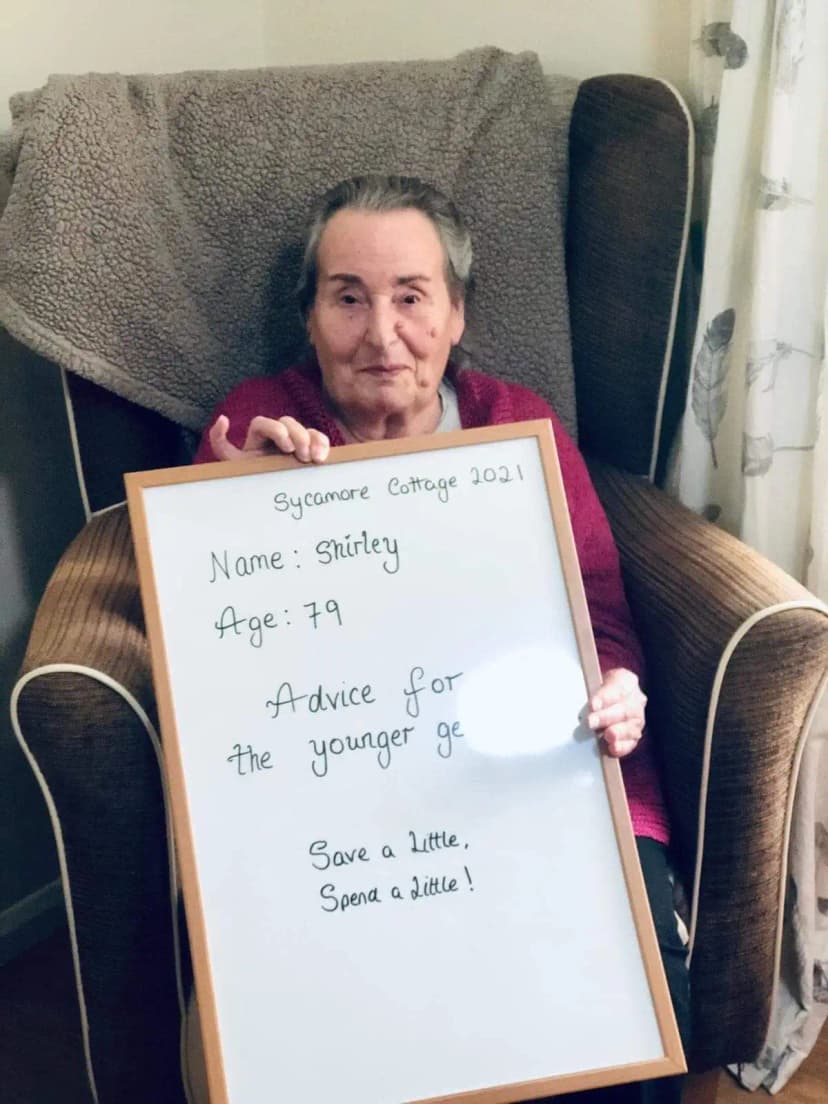 Sycamore Cottage 2021
Name: Shirley
Age: 79
Advice for
the younger
Save a Little,
Spend a Little!